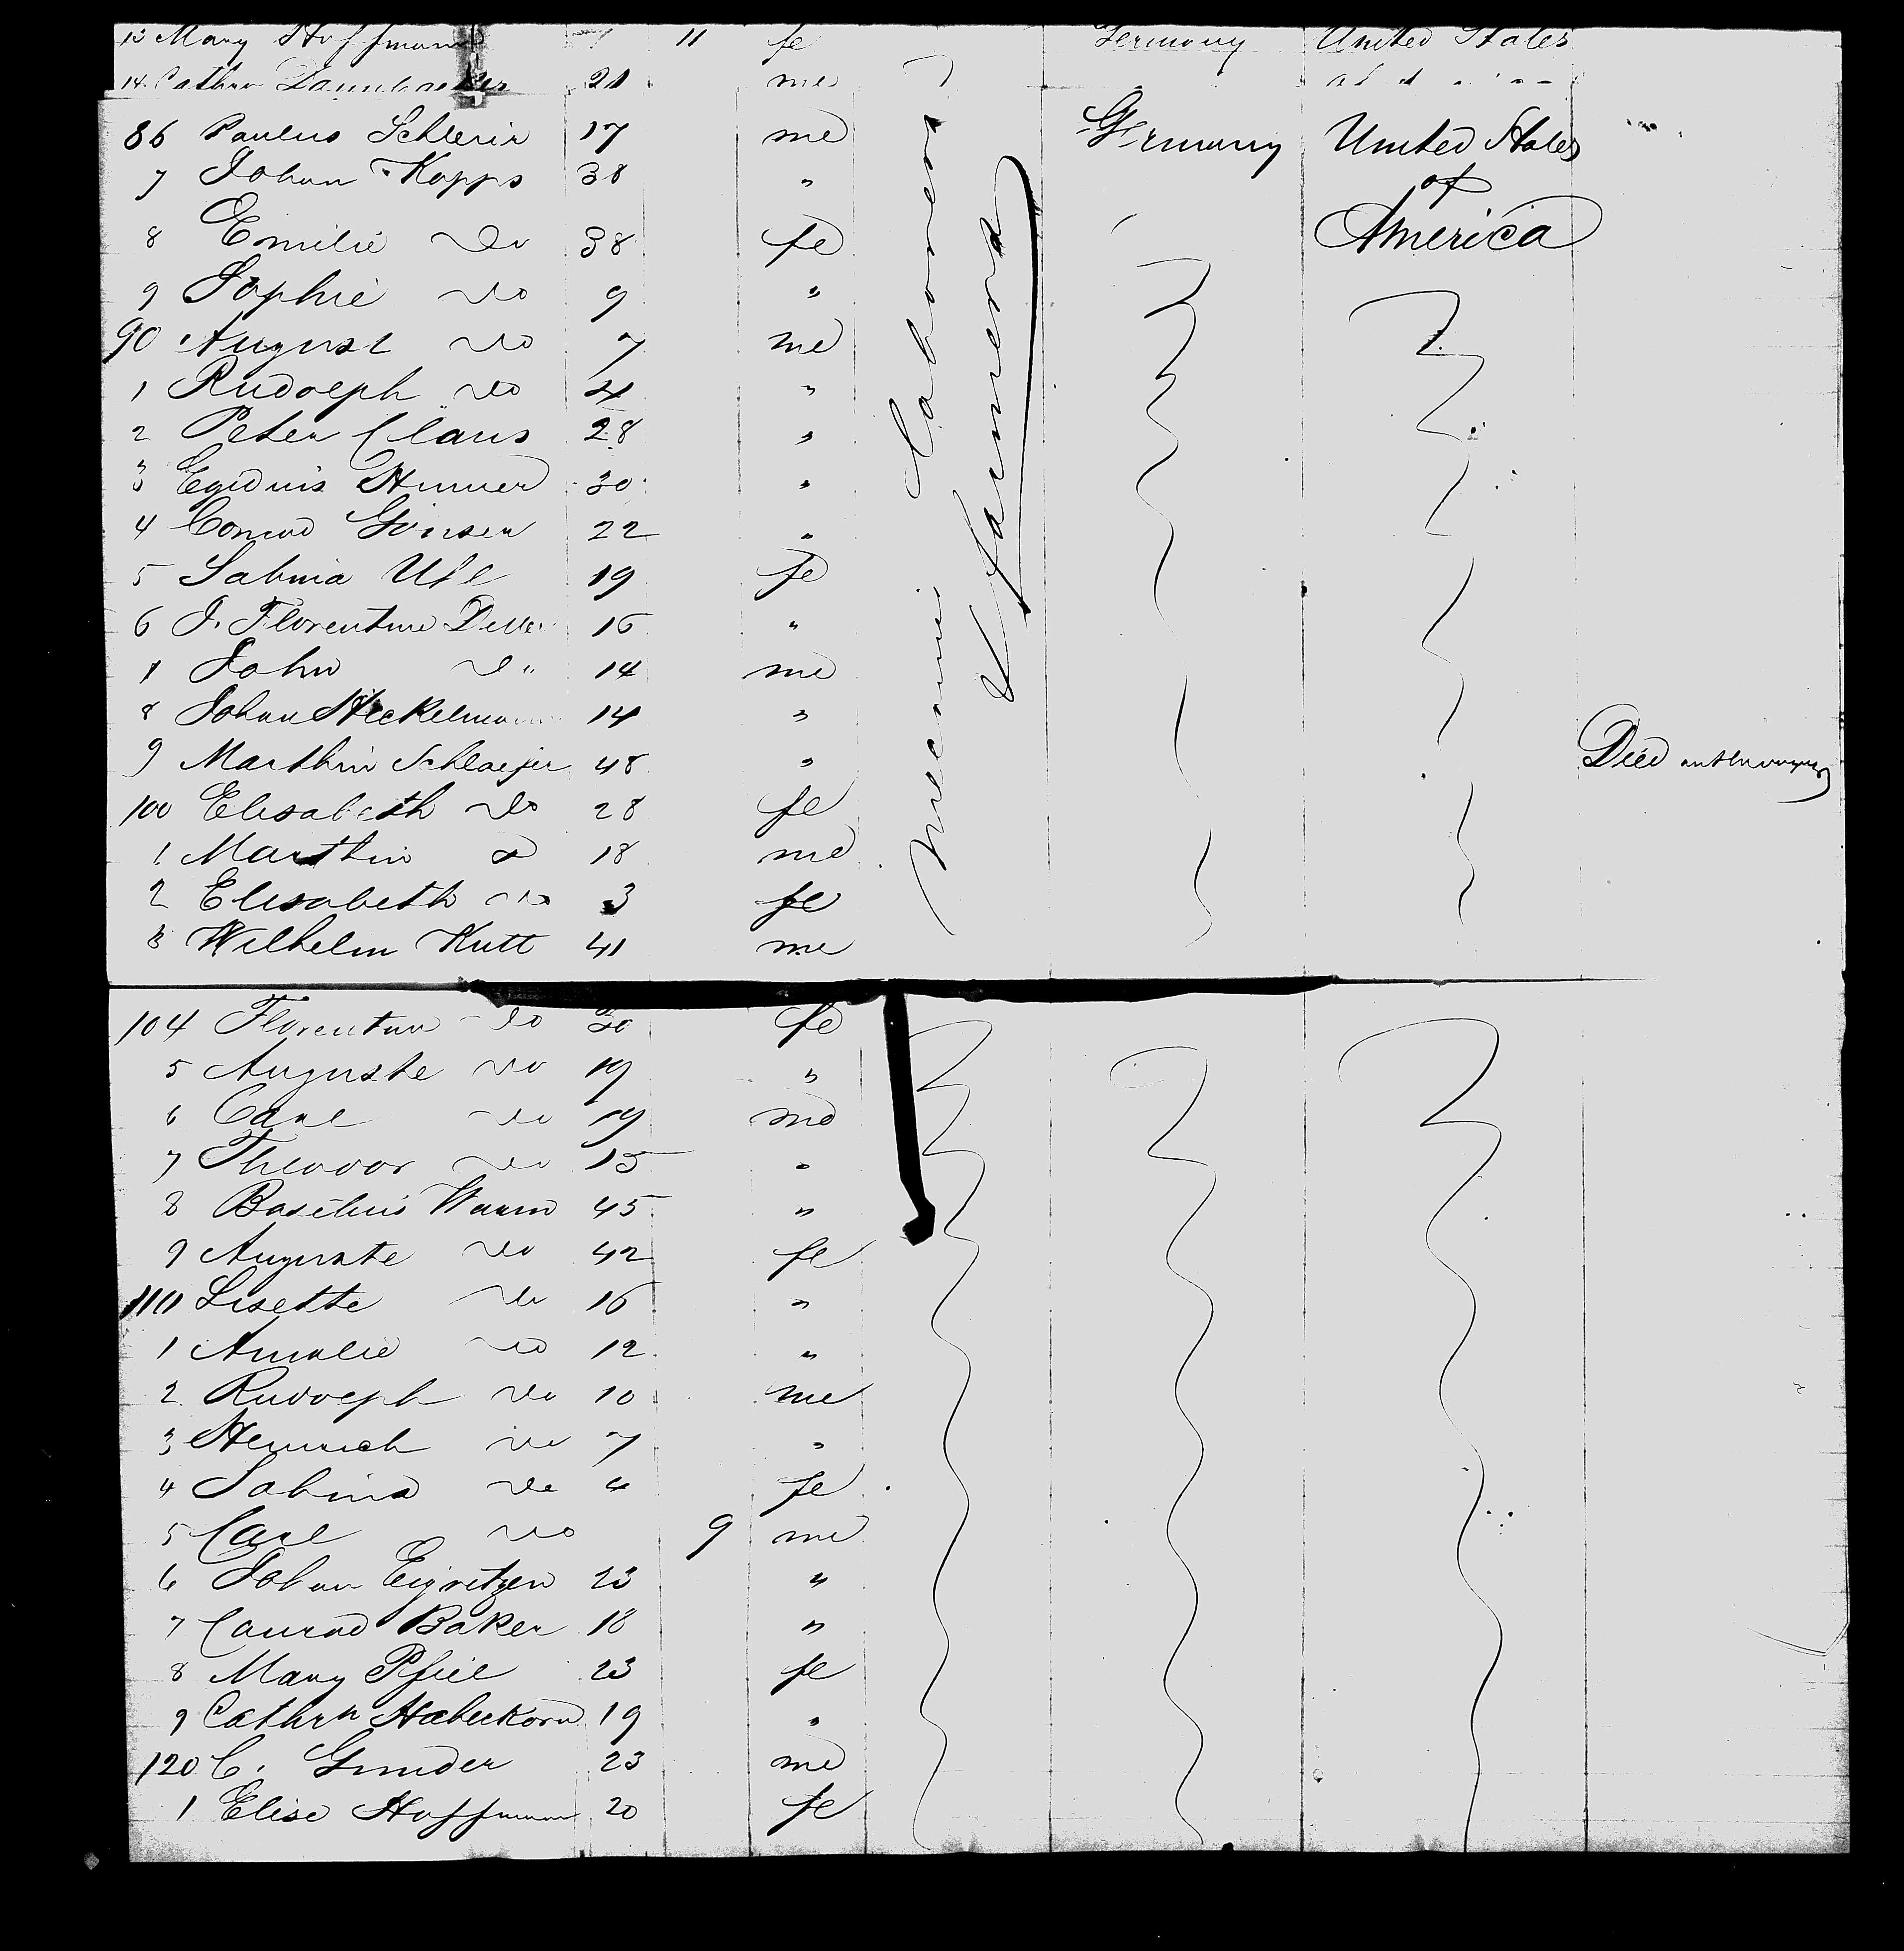 13 Mary Hoffmann 11 fe Germany United States
14 Cathrn 21 me
86 Paulus Schlerin 17 me Germany United States
7 Johan Kopps 38 " of
8 Emilie do 38 fe America
9 Sophie do 9 "
90 August do 7 me
1 Rudolph do 4 "
2 Peter Claus 28 "
3 Egidius 30 "
4 Conrad Ginsen 22 "
5 Sabina Uhl 19 fe
6 J. Florentine 16 "
7 John do 14 me
8 Johan Heckelmann 14 "
9 Marthin Schlaefer 48 " Died on the voyage
100 Elisabeth do 28 fe
1 Marthin do 18 me
2 Elisabeth do 3 fe
3 Wilhelm Kutt 41 me
Mecanic Laborers
& Farmers
104 Florentine do 30 fe
5 Auguste do 19 "
6 Carl do 19 me
7 Theodor do 15 "
8 Basilius 45 "
9 Auguste do 42 fe
110 Lisette do 16 "
1 Amalie do 12 "
2 Rudolph do 10 me
3 Heinrich do 7 "
4 Sabina do 4 fe
5 Carl do 9 me
6 Johan 23 "
7 Conrad Baker 18 "
8 Mary Pfeil 23 fe
9 Cathrn Haberkorn 19 "
120 C. Grunder 23 me
1 Elise Hoffmann 20 fe